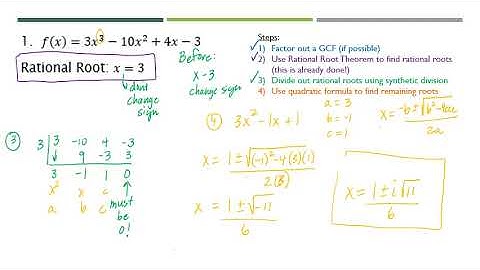 1. f(x) = 3x³ − 10x² + 4x − 3
Rational Root: x = 3
↳ don't
change
sign
Before:
x-3
change sign
Steps:
1) Factor out a GCF (if possible)
2) Use Rational Root Theorem to find rational roots
(this is already done!)
3) Divide out rational roots using synthetic division
4) Use quadratic formula to find remaining roots
③
3 | 3 -10 4 -3
↓ 9 -3 3
3 -1 1 0
x² x c
a b c
must
be
0!
④ 3x² - 1x + 1
a = 3
b = -1
c = 1
x = -b ± √(b² - 4ac) / 2a
x = 1 ± √((-1)² - 4(3)(1)) / 2(3)
x = 1 ± √-11 / 6
x = 1 ± i√11 / 6